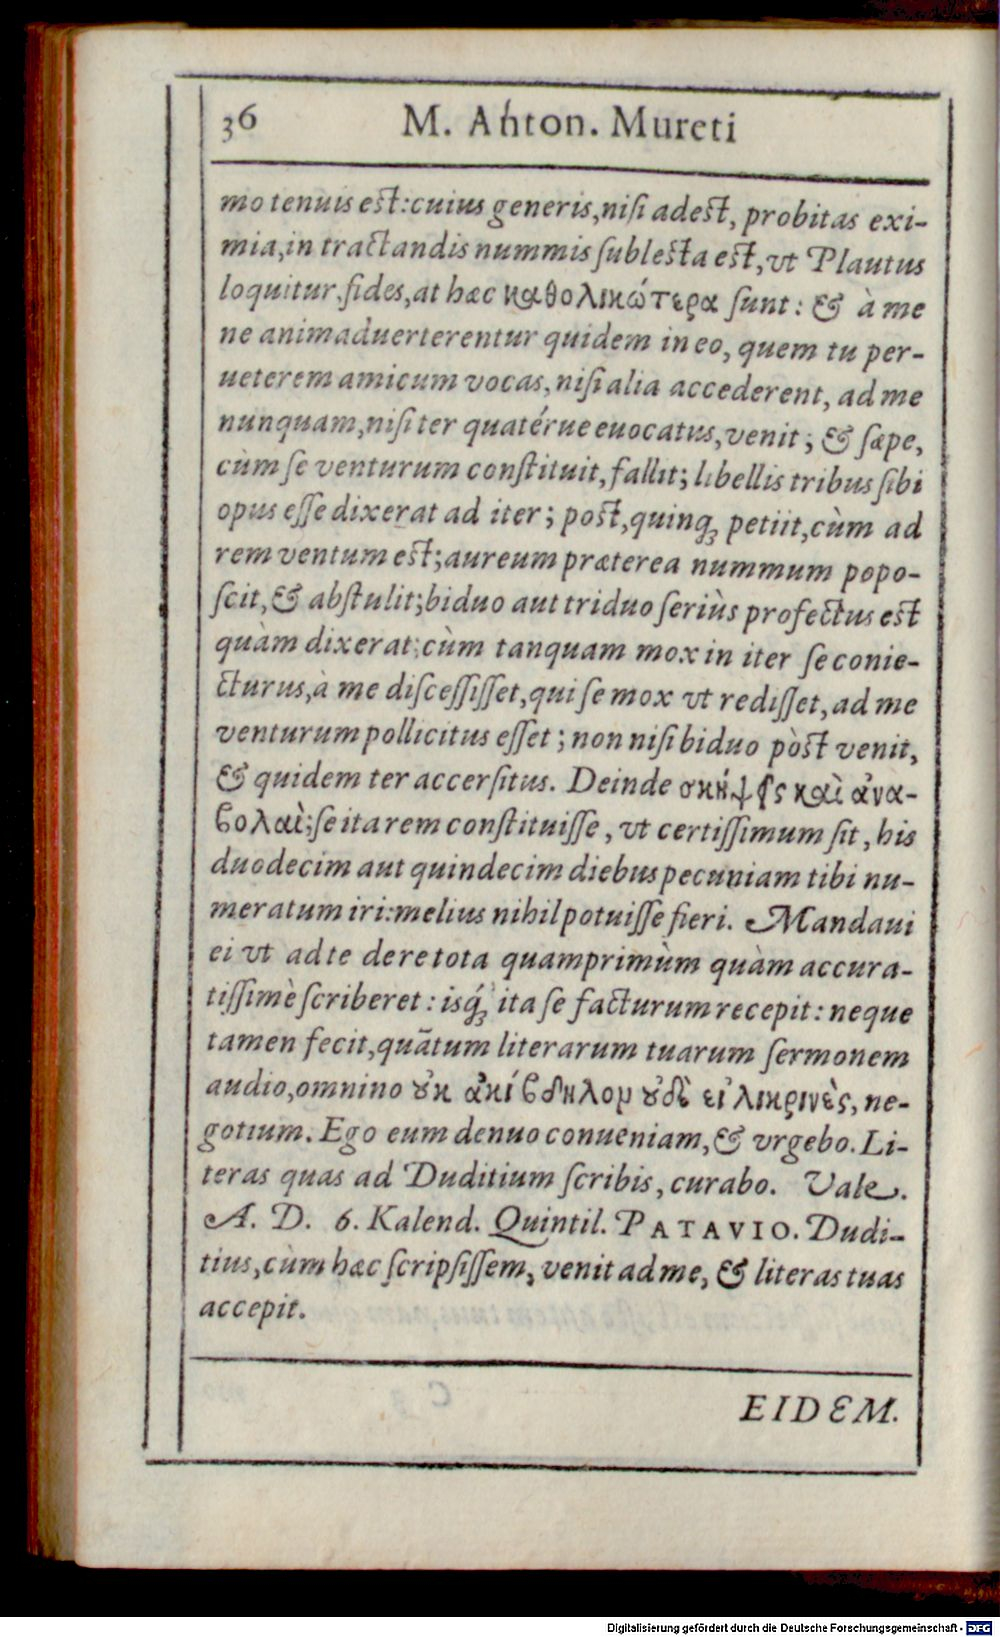 36 M. Anton. Mureti
mo tenuis est: cuius generis, nisi adest, probitas exi-
mia, in tractandis nummis sublesta est, vt Plautus
loquitur, fides, at hæc καθολικώτερα sunt: & à me
ne animaduerterentur quidem in eo, quem tu per-
ueterem amicum vocas, nisi alia accederent, ad me
nunquam, nisi ter quatérue euocatus, venit; & sæpe,
cùm se venturum constituit, fallit; libellis tribus sibi
opus esse dixerat ad iter; post, quinq; petiit, cùm ad
rem ventum est; aureum præterea nummum popo-
scit, & abstulit; biduo aut triduo seriùs profectus est
quàm dixerat: cùm tanquam mox in iter se conie-
cturus, à me discessisset, qui se mox vt redisset, ad me
venturum pollicitus esset; non nisi biduo pòst venit,
& quidem ter accersitus. Deinde σκήψις καὶ ἀνα-
βολαὶ; se ita rem constituisse, vt certissimum sit, his
duodecim aut quindecim diebus pecuniam tibi nu-
meratum iri: melius nihil potuisse fieri. Mandaui
ei vt ad te de re tota quamprimùm quàm accura-
tissimè scriberet: isq́; ita se facturum recepit: neque
tamen fecit, quãtum literarum tuarum sermonem
audio, omnino οὐκ ἀκίβδηλον οὐδὲ εἰλικρινὲς, ne-
gotium. Ego eum denuo conueniam, & vrgebo. Li-
teras quas ad Duditium scribis, curabo. Vale.
A. D. 6. Kalend. Quintil. PATAVIO. Dudi-
tius, cùm hæc scripsissem, venit ad me, & literas tuas
accepit.
EIDEM.
Digitalisierung gefördert durch die Deutsche Forschungsgemeinschaft - DFG